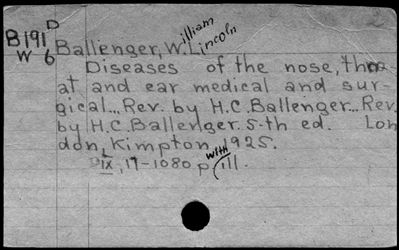 D
B191 Ballenger, William Lincoln
W 6
Diseases of the nose, thro
at and ear medical and sur-
gical... Rev. by H.C. Ballenger... Rev.
by H.C. Ballenger. 5-th ed. Lon
don, Kimpton, 1925.
IX, 17-1080 p. with ill.